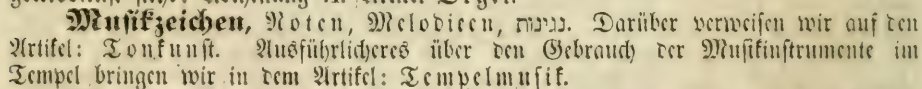 Musikzeichen, Noten, Melodieen, נגינות. Darüber verweisen wir auf den
Artikel: Tonkunst. Ausführlicheres über den Gebrauch der Musikinstrumente im
Tempel bringen wir in dem Artikel: Tempelmusik.